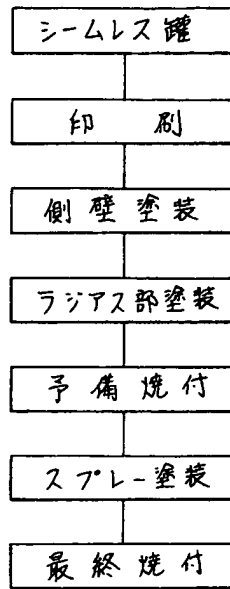 シームレス罐
印刷
側壁塗装
ラジアス部塗装
予備焼付
スプレー塗装
最終焼付